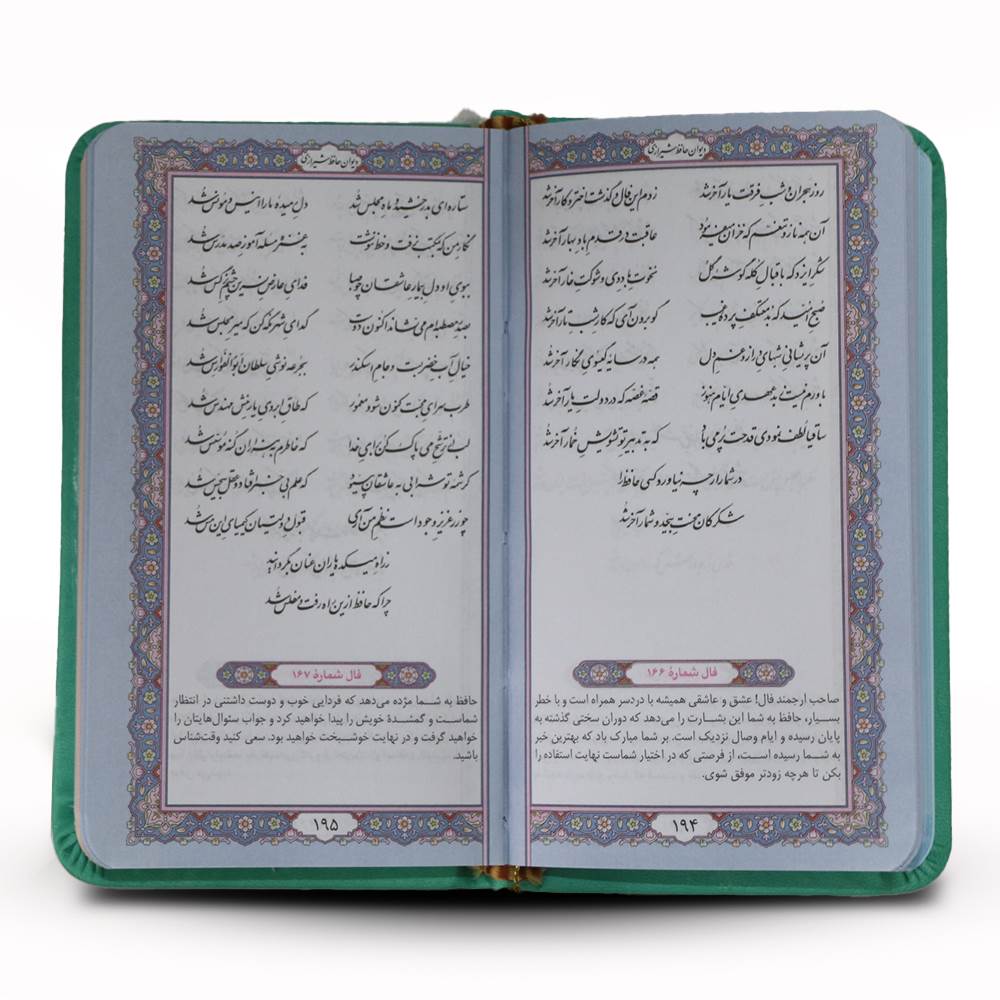 دیوان حافظ شیرازی
روز هجران و شب فرقت یار آخر شد زدم این فال و گذشت اختر و کار آخر شد
آن همه ناز و تنعم که خزان میفرمود عاقبت در قدم باد بهار آخر شد
شکر ایزد که به اقبال کله گوشه گل نخوت باد دی و شوکت خار آخر شد
صبح امید که بد معتکف پرده غیب گو برون آی که کار شب تار آخر شد
آن پریشانی شبهای دراز و غم دل همه در سایه گیسوی نگار آخر شد
باورم نیست ز بدعهدی ایام هنوز قصه غصه که در دولت یار آخر شد
ساقیا لطف نمودی قدحت پر می باد که به تدبیر تو تشویش خمار آخر شد
در شمار ارچه نیاورد کسی حافظ را
شکر کان محنت بیحد و شمار آخر شد
فال شمارهٔ ۱۶۶
صاحب ارجمند فال! عشق و عاشقی همیشه با دردسر همراه است و با خطر
بسیار، حافظ به شما این بشارت را می‌دهد که دوران سختی گذشته به
پایان رسیده و ایام وصال نزدیک است. بر شما مبارک باد که بهترین خبر
به شما رسیده است، از فرصتی که در اختیار شماست نهایت استفاده را
بکن تا هرچه زودتر موفق شوی.
۱۹۴
دیوان حافظ شیرازی
ستاره‌ای بدرخشید و ماه مجلس شد دل رمیده ما را انیس و مونس شد
نگار من که به مکتب نرفت و خط ننوشت به غمزه مسئله آموز صد مدرس شد
ببوی او دل بیمار عاشقان چو صبا فدای عارض نسرین و چشم نرگس شد
بصدر مصطبه‌ام می‌نشاند اکنون دوست گدای شهر نگه کن که میر مجلس شد
خیال آب خضر بست و جام اسکندر بجرعه نوشی سلطان ابوالفوارس شد
طرب سرای محبت کنون شود معمور که طاق ابروی یار منش مهندس شد
لب از ترشح می پاک کن برای خدا که خاطرم به هزاران گنه موسوس شد
کرشمه تو شرابی به عاشقان پیمود که علم بی خبر افتاد و عقل بیحس شد
چو زر عزیز وجود است نظم من آری قبول دولتیان کیمیای این مس شد
ز راه میکده یاران عنان بگردانید
چرا که حافظ ازین راه رفت و مفلس شد
فال شمارهٔ ۱۶۷
حافظ به شما مژده می‌دهد که فردایی خوب و دوست داشتنی در انتظار
شماست و گمشدهٔ خویش را پیدا خواهید کرد و جواب سئوال‌هایتان را
خواهید گرفت و در نهایت خوشبخت خواهید بود. سعی کنید وقت‌شناس
باشید.
۱۹۵